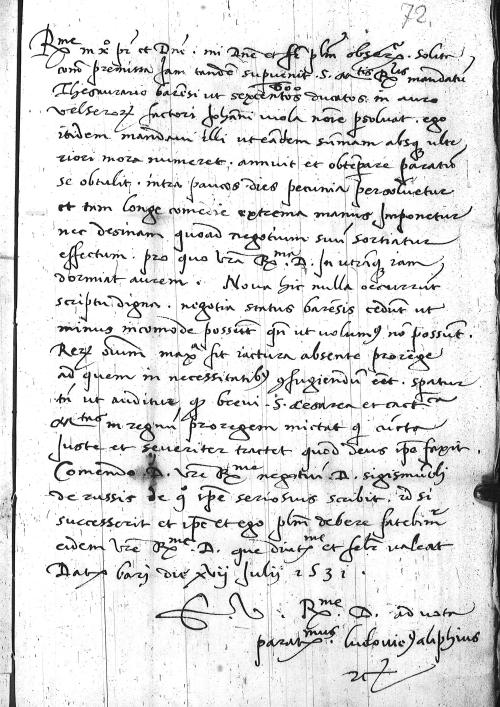 72
R.me in x.o p.r et Dne. mi Dne et fr plm obser.x. solita
com.o premissa Jam tandem supvenit. S. ac tis R.lis mandatu
Thesaurario barēsi ut sexcentos ducatos in auro
velserorz factori Johāni viola noie psolvat. ego
itidem mandavi illi ut eandem sumam absq ulte
riori mora numeret. annuit et obtēpare paratiō
se obtulit. intra paucos dies pecunia persolvetur
et tam longe comedie extrema manus Imponetur
nec desinam quoad negotium suū sortiatur
effectum. pro quo vre R.me D. In utraq ram
dormiat aurem. Nova hic nulla occurrūt
scriptu digna. negotia status barēsis cedūt ut
minus incomode possūt qn ut volum9 nō possūt.
Rerz oium max.a fit iactura absente prorege
ad quem in necessitatib9 9fugiendū eēt. spatur
tn ut auditur qp brevi S. cesarea et cact.ca
M.tas in regnū proregem mictat q cūcta
Juste et severiter tractet quod deus ipe faxit.
Comendo D. vre R.me negotiū D. sigismūdi
de russis de q ipe seriosius scribit. id si
successerit et ipe et ego plm debere fatebim.r
eidem vre R.me D. que diut.me et felr valeat
Dat.z barj die xvij Julii 1531.
E. V. R.me D. ad vota
parat.mus ludovic9 aliphius